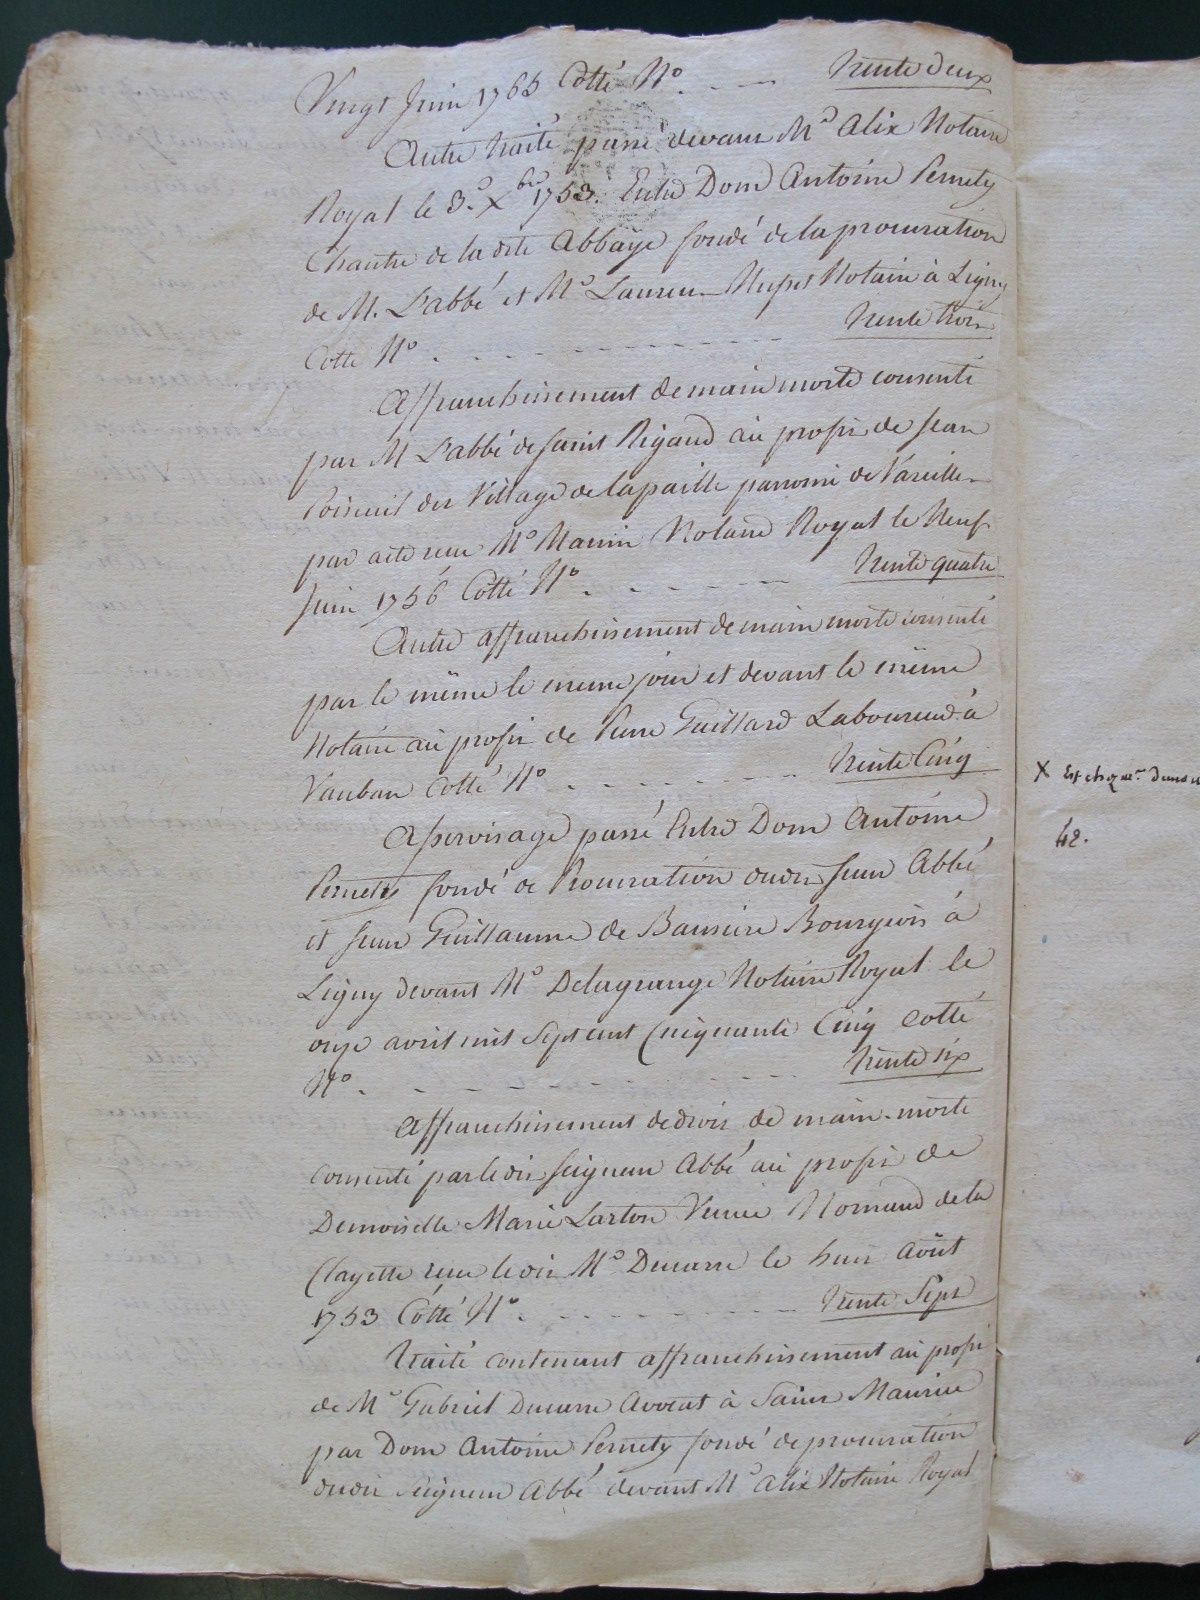 Vingt Juin 1765 Cotté N°. - - Trente deux
Autre traité passé devant Me Alix Notaire
Royal le 3e Xbre 1753. Entre Dom Antoine Pernety
Chantre de la dite Abbaye fondé de la procuration
de M. L'abbé et Me Laurent Notaire à Ligny
Cotté N° . - - - - - - - Trente trois
Affranchissement de main morte consenti
par M L'abbé de Saint Rigaud au profit de Jean
du Village de lapaille parroisse de Vareille
par acte reçu Me Notaire Royal le Neuf
Juin 1756 Cotté N° . - - - - Trente quatre
Autre affranchissement de main morte consenti
par le même le meme jour et devant le même
Notaire au profit de Pierre Guillard Laboureur à
Vauban Cotté N° . - - - - - - Trente Cinq
Asservisage passé Entre Dom Antoine
Pernety fondé de Procuration dudit Sieur Abbé
et Sieur Guillaume de Bourgeois à
Ligny devant Me Delagrange Notaire Royal le
onze avril mil Sept cent Cinquante Cinq cotté
N° . - - - - - - - - Trente six
Affranchissement de droit de main-morte
consenti par ledit Seigneur Abbé au profit de
Demoiselle Marie Larton Veuve Nomand de la
Clayette reçu ledit Me Ducarre le huit Août
1753 Cotté N° . - - - - - - Trente Sept
Traité contenant affranchissement au profit
de Me Gabriel Ducarre Avocat à Saint Maurice
par Dom Antoine Pernety fondé de procuration
dudit Seigneur Abbé devant Me Alix Notaire Royal
X Est
42.